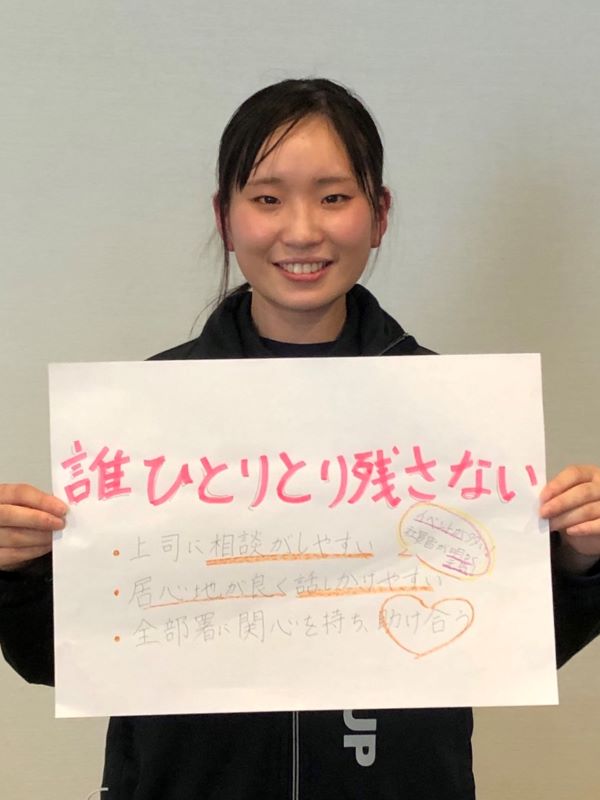 誰ひとりとり残さない
・上司に相談がしやすい
イベントが多い!
社員皆が明るく
元気
・居心地が良く話しかけやすい
・全部署に関心を持ち、助け合う
UP